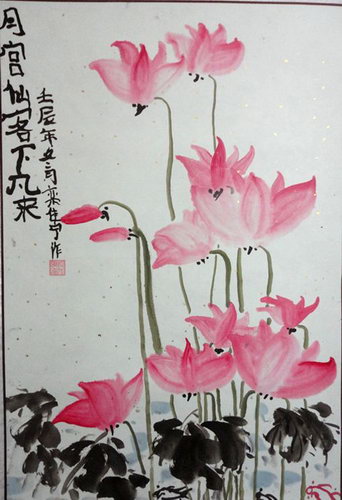 月宫仙客下凡来
壬辰年五月栾作